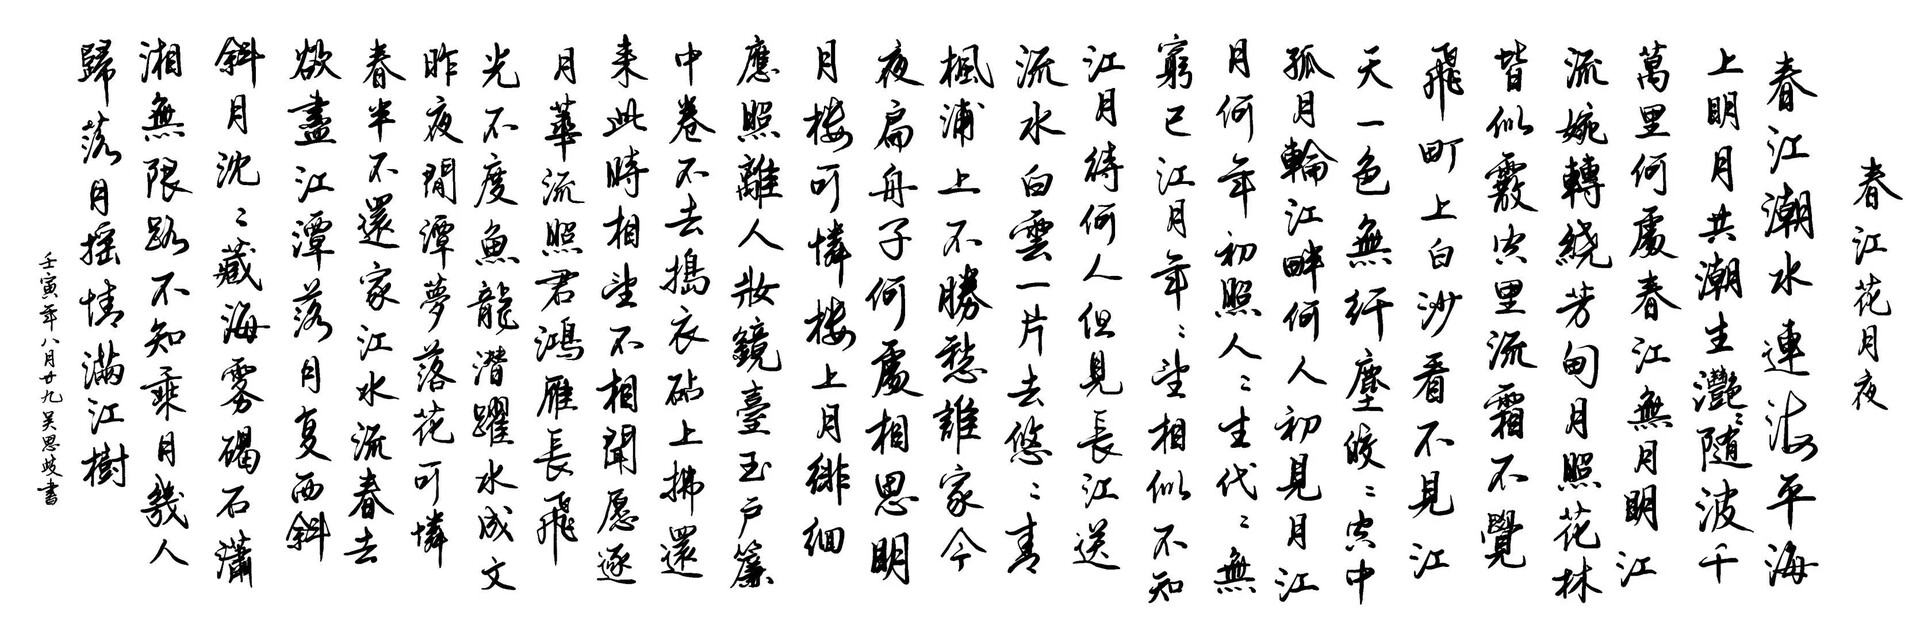 春江花月夜
春江潮水連海平海
上明月共潮生灩〻随波千
萬里何處春江無月明江
流婉轉繞芳甸月照花林
皆似霰空里流霜不覺
飛町上白沙看不見江
天一色無纤塵皎〻空中
孤月輪江畔何人初見月江
月何年初照人〻生代〻無
窮已江月年〻望相似不知
江月待何人但見長江送
流水白雲一片去悠〻青
楓浦上不勝愁誰家今
夜扁舟子何處相思明
月楼可憐楼上月徘徊
應照離人妝鏡臺玉戶簾
中卷不去搗衣砧上拂還
来此時相望不相聞愿逐
月華流照君鴻雁長飛
光不度魚龍潜躍水成文
昨夜閒潭夢落花可憐
春半不還家江水流春去
欲盡江潭落月复西斜
斜月沈〻藏海雾碣石瀟
湘無限路不知乘月幾人
歸落月摇情滿江樹
壬寅年八月廿九吴思歧書